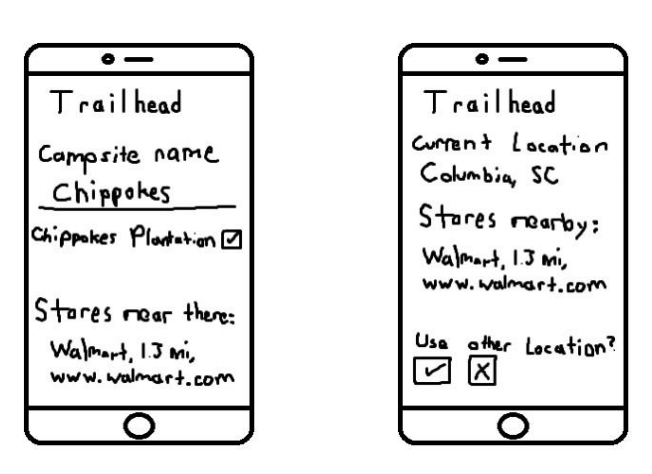 Trailhead
Campsite name
Chippokes
Chippokes Plantation
Stores near there:
Walmart, 1.3 mi,
www.walmart.com
Trailhead
Current Location
Columbia, SC
Stores nearby:
Walmart, 1.3 mi,
www.walmart.com
Use other Location?